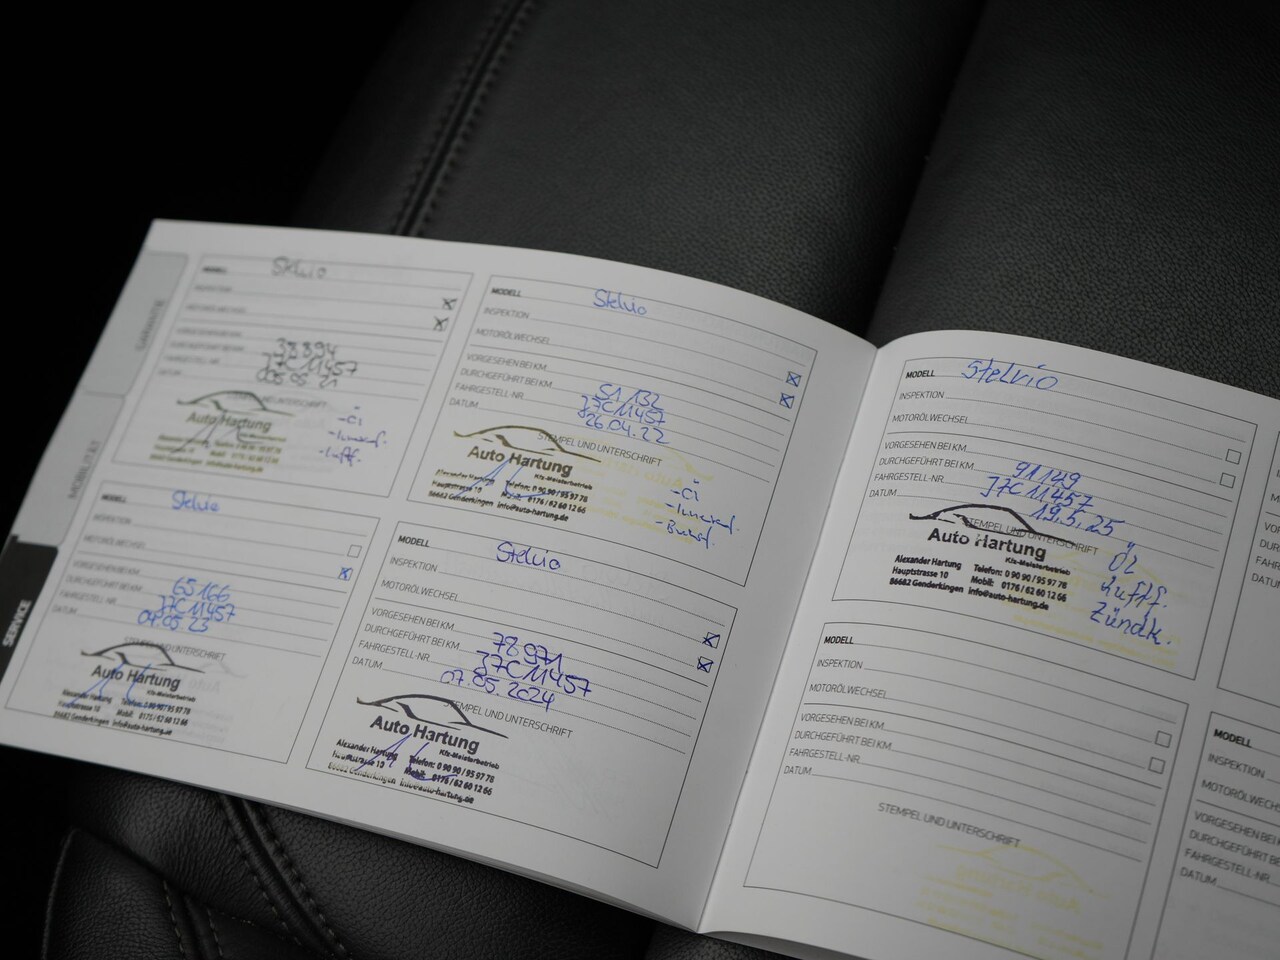 GARANTIE
MOBILITÄT
SERVICE
MODELL Stelvio
INSPEKTION
MOTORÖLWECHSEL
VORGESEHEN BEI KM
DURCHGEFÜHRT BEI KM 38894
FAHRGESTELL-NR. J7C11457
DATUM 05.05.21
STEMPEL UND UNTERSCHRIFT
Auto Hartung
Kfz-Meisterbetrieb
Alexander Hartung Telefon: 0 90 90 / 95 97 78
Hauptstrasse 10 Mobil: 0176 / 62 60 12 66
86682 Genderkingen info@auto-hartung.de
-Öl
-Innenf.
-Luff.
MODELL Stelvio
INSPEKTION
MOTORÖLWECHSEL
VORGESEHEN BEI KM
DURCHGEFÜHRT BEI KM 51 132
FAHRGESTELL-NR. J7C11457
DATUM 26.04.22
STEMPEL UND UNTERSCHRIFT
Auto Hartung
Kfz-Meisterbetrieb
Alexander Hartung Telefon: 0 90 90 / 95 97 78
Hauptstrasse 10 Mobil: 0176 / 62 60 12 66
86682 Genderkingen info@auto-hartung.de
-Öl
-Innenf.
-Bremsf.
MODELL Stelvio
INSPEKTION
MOTORÖLWECHSEL
VORGESEHEN BEI KM
DURCHGEFÜHRT BEI KM 65166
FAHRGESTELL-NR. J7C11457
DATUM 09.05.23
STEMPEL UND UNTERSCHRIFT
Auto Hartung
Kfz-Meisterbetrieb
Alexander Hartung Telefon: 0 90 90 / 95 97 78
Hauptstrasse 10 Mobil: 0176 / 62 60 12 66
86682 Genderkingen info@auto-hartung.de
MODELL Stelvio
INSPEKTION
MOTORÖLWECHSEL
VORGESEHEN BEI KM
DURCHGEFÜHRT BEI KM 78971
FAHRGESTELL-NR. J7C11457
DATUM 07.05.2024
STEMPEL UND UNTERSCHRIFT
Auto Hartung
Kfz-Meisterbetrieb
Alexander Hartung Telefon: 0 90 90 / 95 97 78
Hauptstrasse 10 Mobil: 0176 / 62 60 12 66
86682 Genderkingen info@auto-hartung.de
MODELL Stelvio
INSPEKTION
MOTORÖLWECHSEL
VORGESEHEN BEI KM
DURCHGEFÜHRT BEI KM 91149
FAHRGESTELL-NR. J7C11457
DATUM 19.5.25
STEMPEL UND UNTERSCHRIFT
Auto Hartung
Kfz-Meisterbetrieb
Alexander Hartung Telefon: 0 90 90 / 95 97 78
Hauptstrasse 10 Mobil: 0176 / 62 60 12 66
86682 Genderkingen info@auto-hartung.de
Öl
Luftf.
Zündk.
MODELL
INSPEKTION
MOTORÖLWECHSEL
VORGESEHEN BEI KM
DURCHGEFÜHRT BEI KM
FAHRGESTELL-NR.
DATUM
STEMPEL UND UNTERSCHRIFT
MODELL
INSPEKTION
MOTORÖLWECHS
VORGESEHEN BEI K
DURCHGEFÜHRT BE
FAHRGESTELL-NR.
DATUM